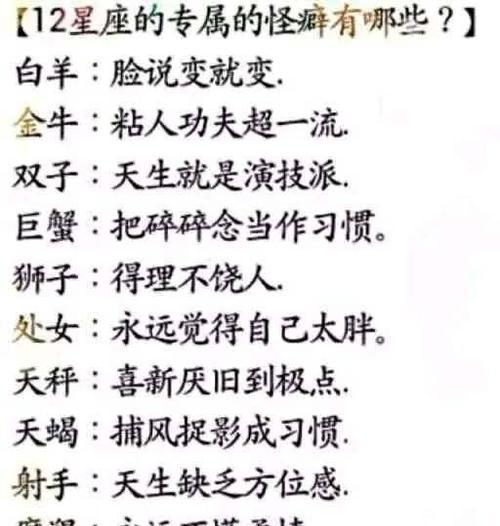 【12星座的专属的怪癖有哪些？】
白羊：脸说变就变.
金牛：粘人功夫超一流.
双子：天生就是演技派.
巨蟹：把碎碎念当作习惯。
狮子：得理不饶人.
处女：永远觉得自己太胖。
天秤：喜新厌旧到极点.
天蝎：捕风捉影成习惯.
射手：天生缺乏方位感.